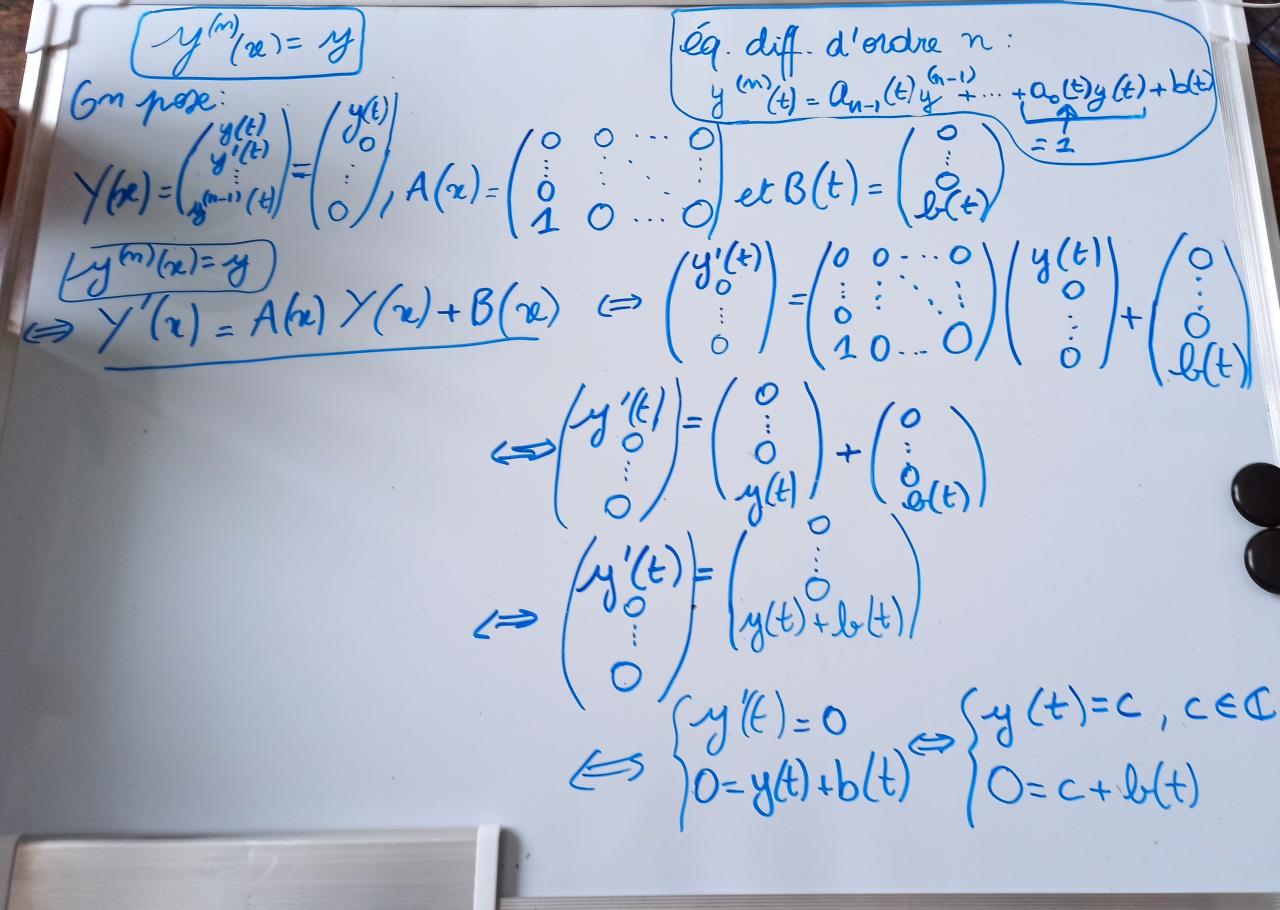 y⁽ⁿ⁾(x) = y
éq. diff. d'ordre n :
y⁽ⁿ⁾(t) = aₙ₋₁(t) y⁽ⁿ⁻¹⁾ + ... + a₀(t)y(t) + b(t)
↑
= 1
On pose :
Y(x) = (y(t) y'(t) ⋮ y⁽ⁿ⁻¹⁾(t)) = (y(t) 0 ⋮ 0), A(x) = (0 0 ... 0 ⋮ ⋱ ⋮ 0 1 0 ... 0) et B(t) = (0 ⋮ 0 b(t))
y⁽ⁿ⁾(x) = y
⇔ Y'(x) = A(x) Y(x) + B(x) ⇔ (y'(t) 0 ⋮ 0) = (0 0 ... 0 ⋮ ⋮ ⋱ ⋮ 0 1 0 ... 0) (y(t) 0 ⋮ 0) + (0 ⋮ 0 b(t))
⇔ (y'(t) 0 ⋮ 0) = (0 ⋮ 0 y(t)) + (0 ⋮ 0 b(t))
⇔ (y'(t) 0 ⋮ 0) = (0 ⋮ 0 y(t) + b(t))
⇔ { y'(t) = 0 ⇔ { y(t) = c, c ∈ ℂ
0 = y(t) + b(t) 0 = c + b(t)